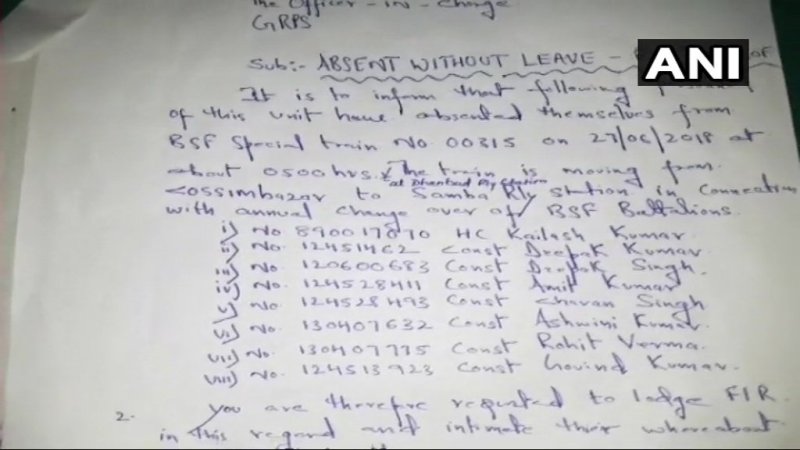 The Officer - IN - Charge
GRPS
ANI
Sub:- ABSENT WITHOUT LEAVE - OF
It is to inform that following
of this unit have absented themselves from
BSF Special train No. 00315 on 27/06/2018 at
about 0500 hrs. The train is moving from
at Dhanbad Rly Station
Cossimbazar to Samba Rly Station in connection
with annual change over of BSF Battalions.
i) No 890017070 HC Kailash Kumar.
ii) No. 12451462 Const Deepak Kumar.
iii) No. 120600683 Const Deepak Singh.
iv) No. 124528411 Const Amit Kumar
v) No. 124528493 Const Charan Singh
vi) No. 130407632 Const Ashwini Kumar.
vii) No. 130407775 Const Rohit Verma.
viii) No. 124513923 Const Govind Kumar.
2. You are therefore requested to lodge FIR
in this regard and intimate their whereabout